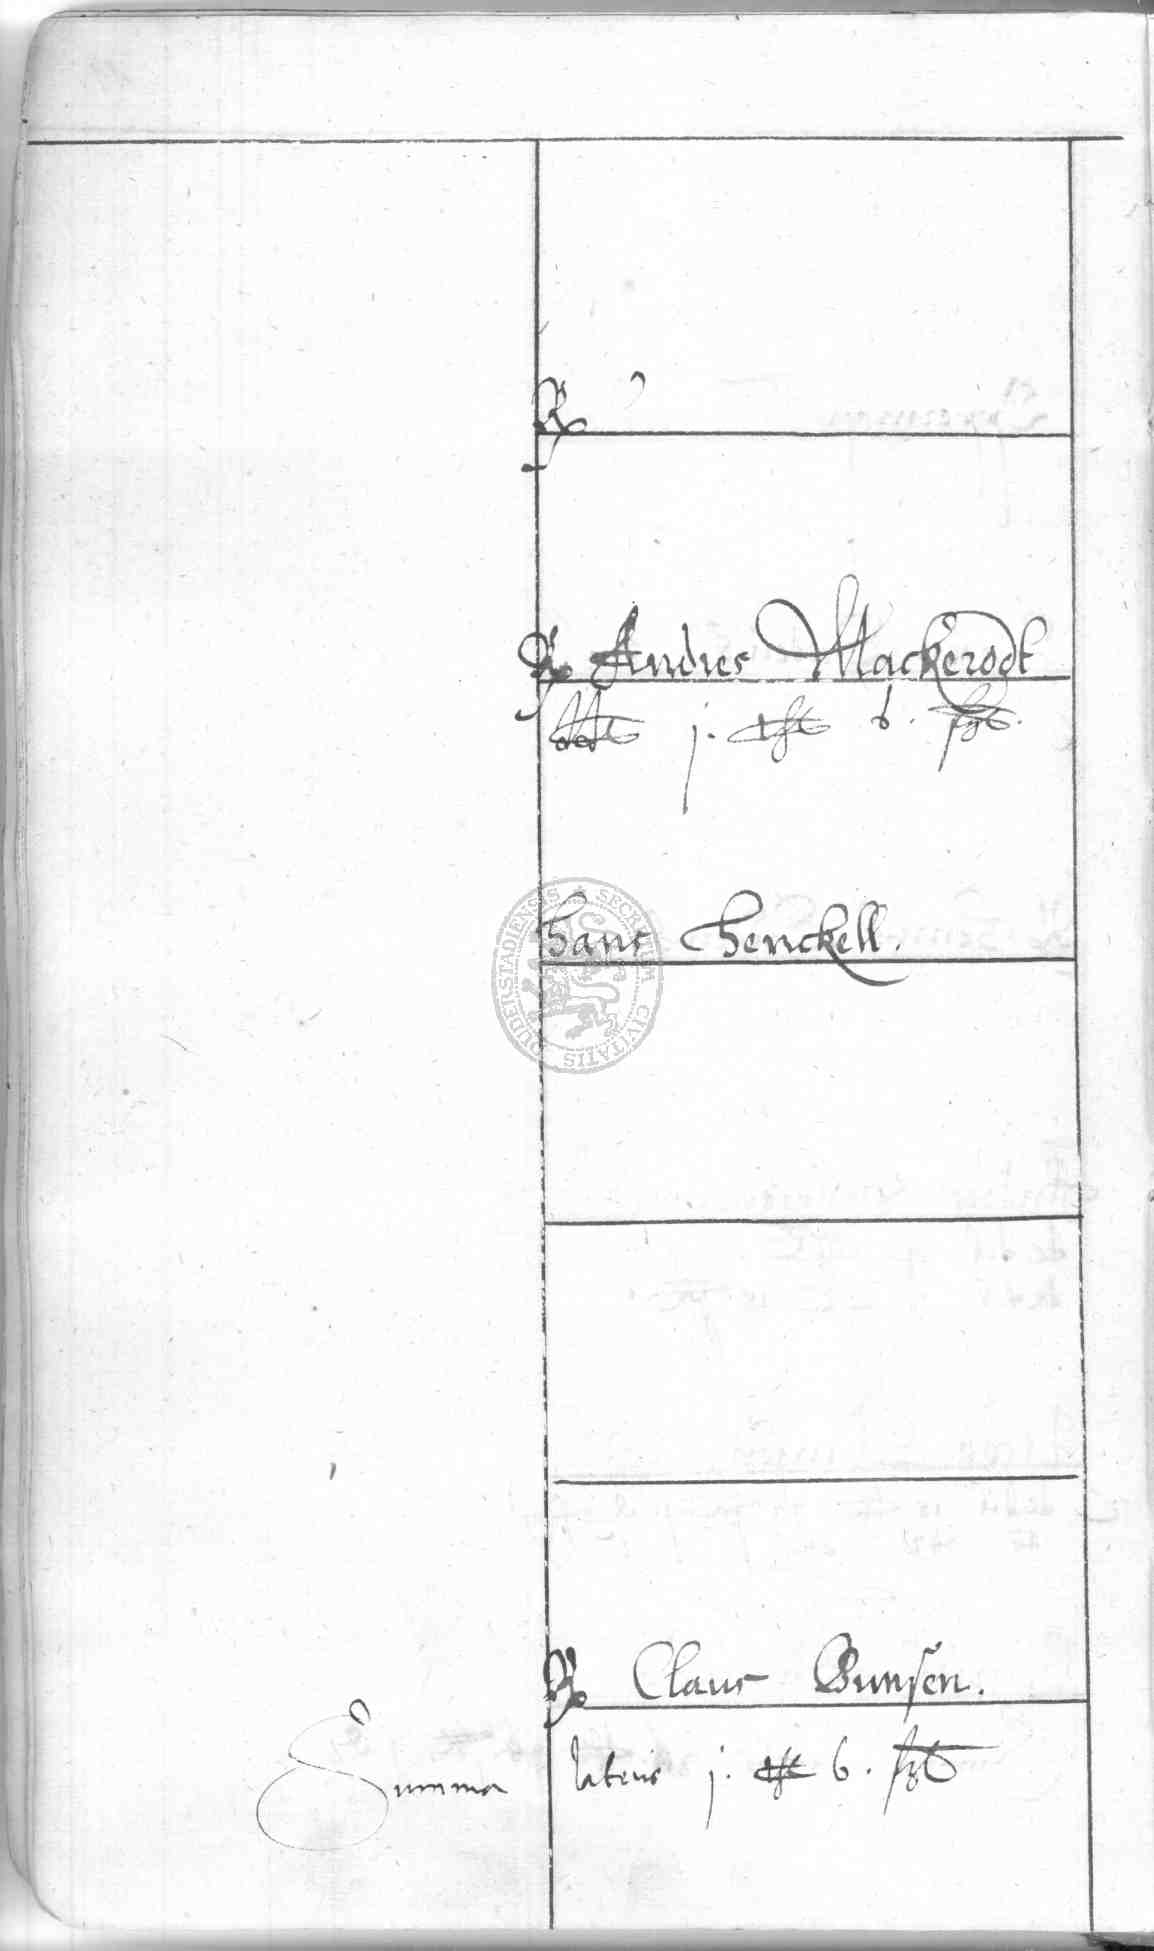 R
R Andres Mackerodt
dedit j. 6.
Hans Henckell.
SECRETUM CIVITATIS DUDERSTADIENSIS
R Claus Bunsen.
Summa lateris j. 6.